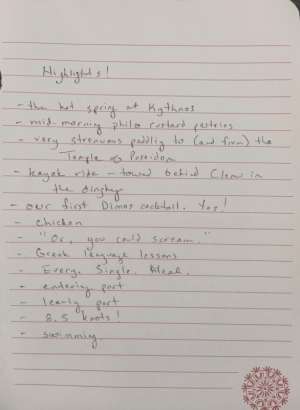 Highlights!
- the hot spring at Kythnos
- mid-morning philo custard pastries
- very strenuous paddlig to (and from) the
Temple of Poseidon
- kayak ride - towed behind Cleon in
the dinghy
- our first Dimos cocktail. Yes!
- chicken
- "Or, you could scream."
- Greek language lessons
- Every. Single. Meal.
- entering port
- leaving port
- 8.5 knots!
- swimming.